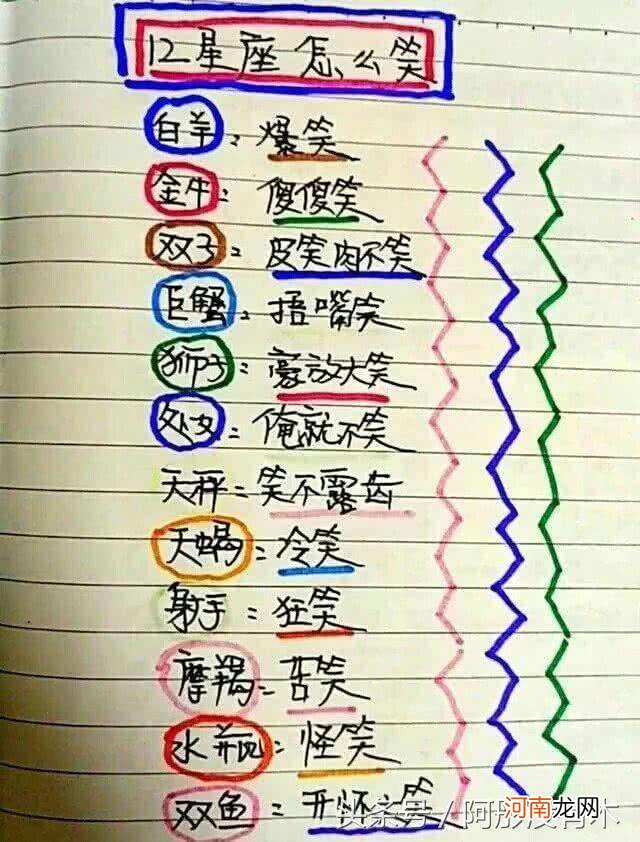 12星座怎么笑
白羊：爆笑
金牛：傻傻笑
双子：皮笑肉不笑
巨蟹：捂嘴笑
狮子：豪放大笑
处女：俺就不笑
天秤：笑不露齿
天蝎：冷笑
射手：狂笑
摩羯：苦笑
水瓶：怪笑
双鱼：开怀笑
头条号 / 阿彤没有木
河南龙网